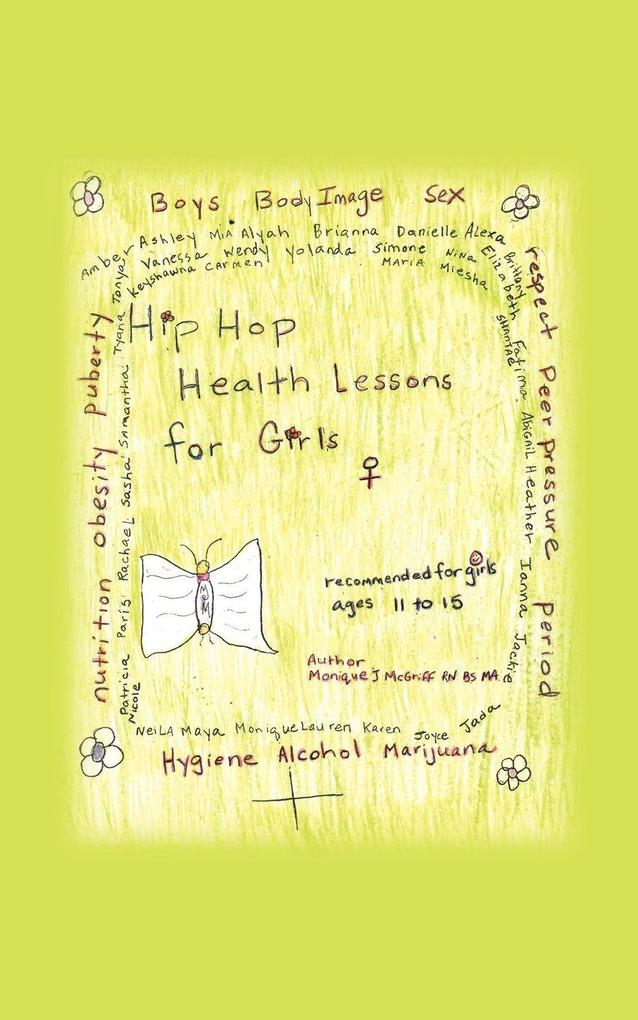 Boys Body Image Sex
Amber Ashley Mia Alyah Brianna Danielle Alexa
Vanessa Wendy Yolanda Simone Nina Elizabeth Brittany
Keyshawna Carmen Maria Miesha
Hip Hop
Health Lessons
for Girls
recommended for girls
ages 11 to 15
Author
Monique J McGriff RN BS MA
nutrition obesity puberty
Patricia Paris Rachael Sasha Samantha Tyana Tonya
Nicole
respect Peer pressure period
Shantae Fatima Abigail Heather Ianna Jackie
Neila Maya Monique Lauren Karen Joyce Jada
Hygiene Alcohol Marijuana